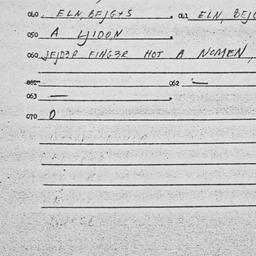 040 ELN, BEJG+S 041 ELN, BEJG
050 A YIDON
060 JEJD3R FINGER HOT A NOMEN,
061 062 —
063 —
070 0